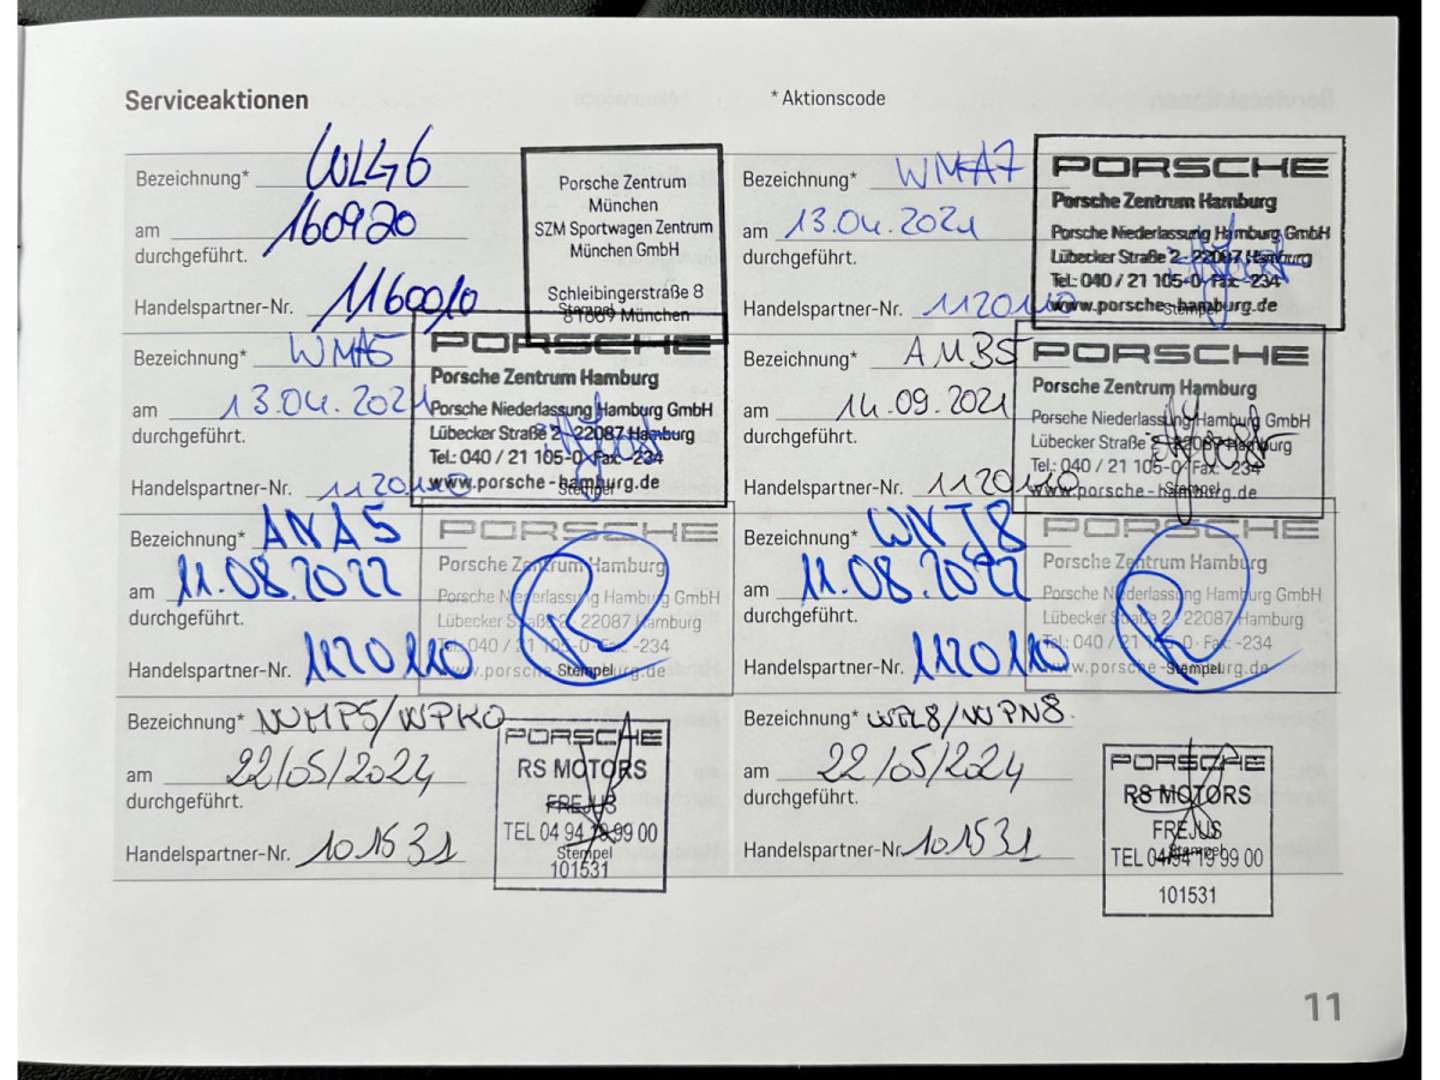 Serviceaktionen
* Aktionscode
Bezeichnung* WLG6
am 160920
durchgeführt.
Handelspartner-Nr. 1160010
Porsche Zentrum
München
SZM Sportwagen Zentrum
München GmbH
Schleibingerstraße 8
Stempel
81669 München
Bezeichnung* WMA7
am 13.04.2021
durchgeführt.
Handelspartner-Nr. 1120110
PORSCHE
Porsche Zentrum Hamburg
Porsche Niederlassung Hamburg GmbH
Lübecker Straße 2 · 22087 Hamburg
Tel.: 040 / 21 105-0 · Fax: -234
www.porsche-hamburg.de
Stempel
Bezeichnung* WMA5
am 13.04.2021
durchgeführt.
Handelspartner-Nr. 1120110
PORSCHE
Porsche Zentrum Hamburg
Porsche Niederlassung Hamburg GmbH
Lübecker Straße 2 · 22087 Hamburg
Tel.: 040 / 21 105-0 · Fax: -234
www.porsche-hamburg.de
Stempel
Bezeichnung* AMB5
am 14.09.2021
durchgeführt.
Handelspartner-Nr. 1120110
PORSCHE
Porsche Zentrum Hamburg
Porsche Niederlassung Hamburg GmbH
Lübecker Straße 2 · 22087 Hamburg
Tel.: 040 / 21 105-0 · Fax: -234
www.porsche-hamburg.de
Stempel
Bezeichnung* ANA5
am 11.08.2022
durchgeführt.
Handelspartner-Nr. 1120110
PORSCHE
Porsche Zentrum Hamburg
Porsche Niederlassung Hamburg GmbH
Lübecker Straße 2 · 22087 Hamburg
Tel.: 040 / 21 105-0 · Fax: -234
www.porsche-hamburg.de
Stempel
Bezeichnung* WNJ8
am 11.08.2022
durchgeführt.
Handelspartner-Nr. 1120110
PORSCHE
Porsche Zentrum Hamburg
Porsche Niederlassung Hamburg GmbH
Lübecker Straße 2 · 22087 Hamburg
Tel.: 040 / 21 105-0 · Fax: -234
www.porsche-hamburg.de
Stempel
Bezeichnung* WMP5/WPK0
am 22/05/2024
durchgeführt.
Handelspartner-Nr. 101531
PORSCHE
RS MOTORS
FREJUS
TEL 04 94 19 99 00
Stempel
101531
Bezeichnung* WPL8/WPN8
am 22/05/2024
durchgeführt.
Handelspartner-Nr. 101531
PORSCHE
RS MOTORS
FREJUS
Stempel
TEL 04 94 19 99 00
101531
11